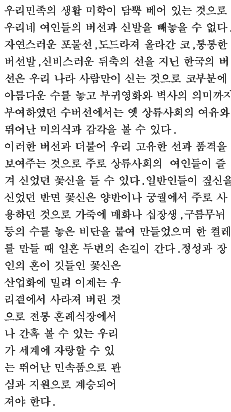 우리민족의 생활 미학이 담뿍 베어 있는 것으로
우리네 여인들의 버선과 신발을 빼놓을 수 없다.
자연스러운 포물선,도드라져 올라간 코,통통한
버선발,신비스러운 뒤축의 선을 지닌 한국의 버
선은 우리 나라 사람만이 신는 것으로 코부분에
아름다운 수를 놓고 부귀영화와 벽사의 의미까지
부여하였던 수버선에서는 옛 상류사회의 여유와
뛰어난 미의식과 감각을 볼 수 있다.
이러한 버선과 더불어 우리 고유한 선과 품격을
보여주는 것으로 주로 상류사회의 여인들이 즐
겨 신었던 꽃신을 들 수 있다.일반인들이 짚신을
신었던 반면 꽃신은 양반이나 궁궐에서 주로 사
용하던 것으로 가죽에 매화나 십장생,구름무늬
등의 수를 놓은 비단을 붙여 만들었으며 한 켤레
를 만들 때 일흔 두번의 손길이 간다.정성과 장
인의 혼이 깃들인 꽃신은
산업화에 밀려 이제는 우
리곁에서 사라져 버린 것
으로 전통 혼례식장에서
나 간혹 볼 수 있는 우리
가 세계에 자랑할 수 있
는 뛰어난 민속품으로 관
심과 지원으로 계승되어
져야 한다.